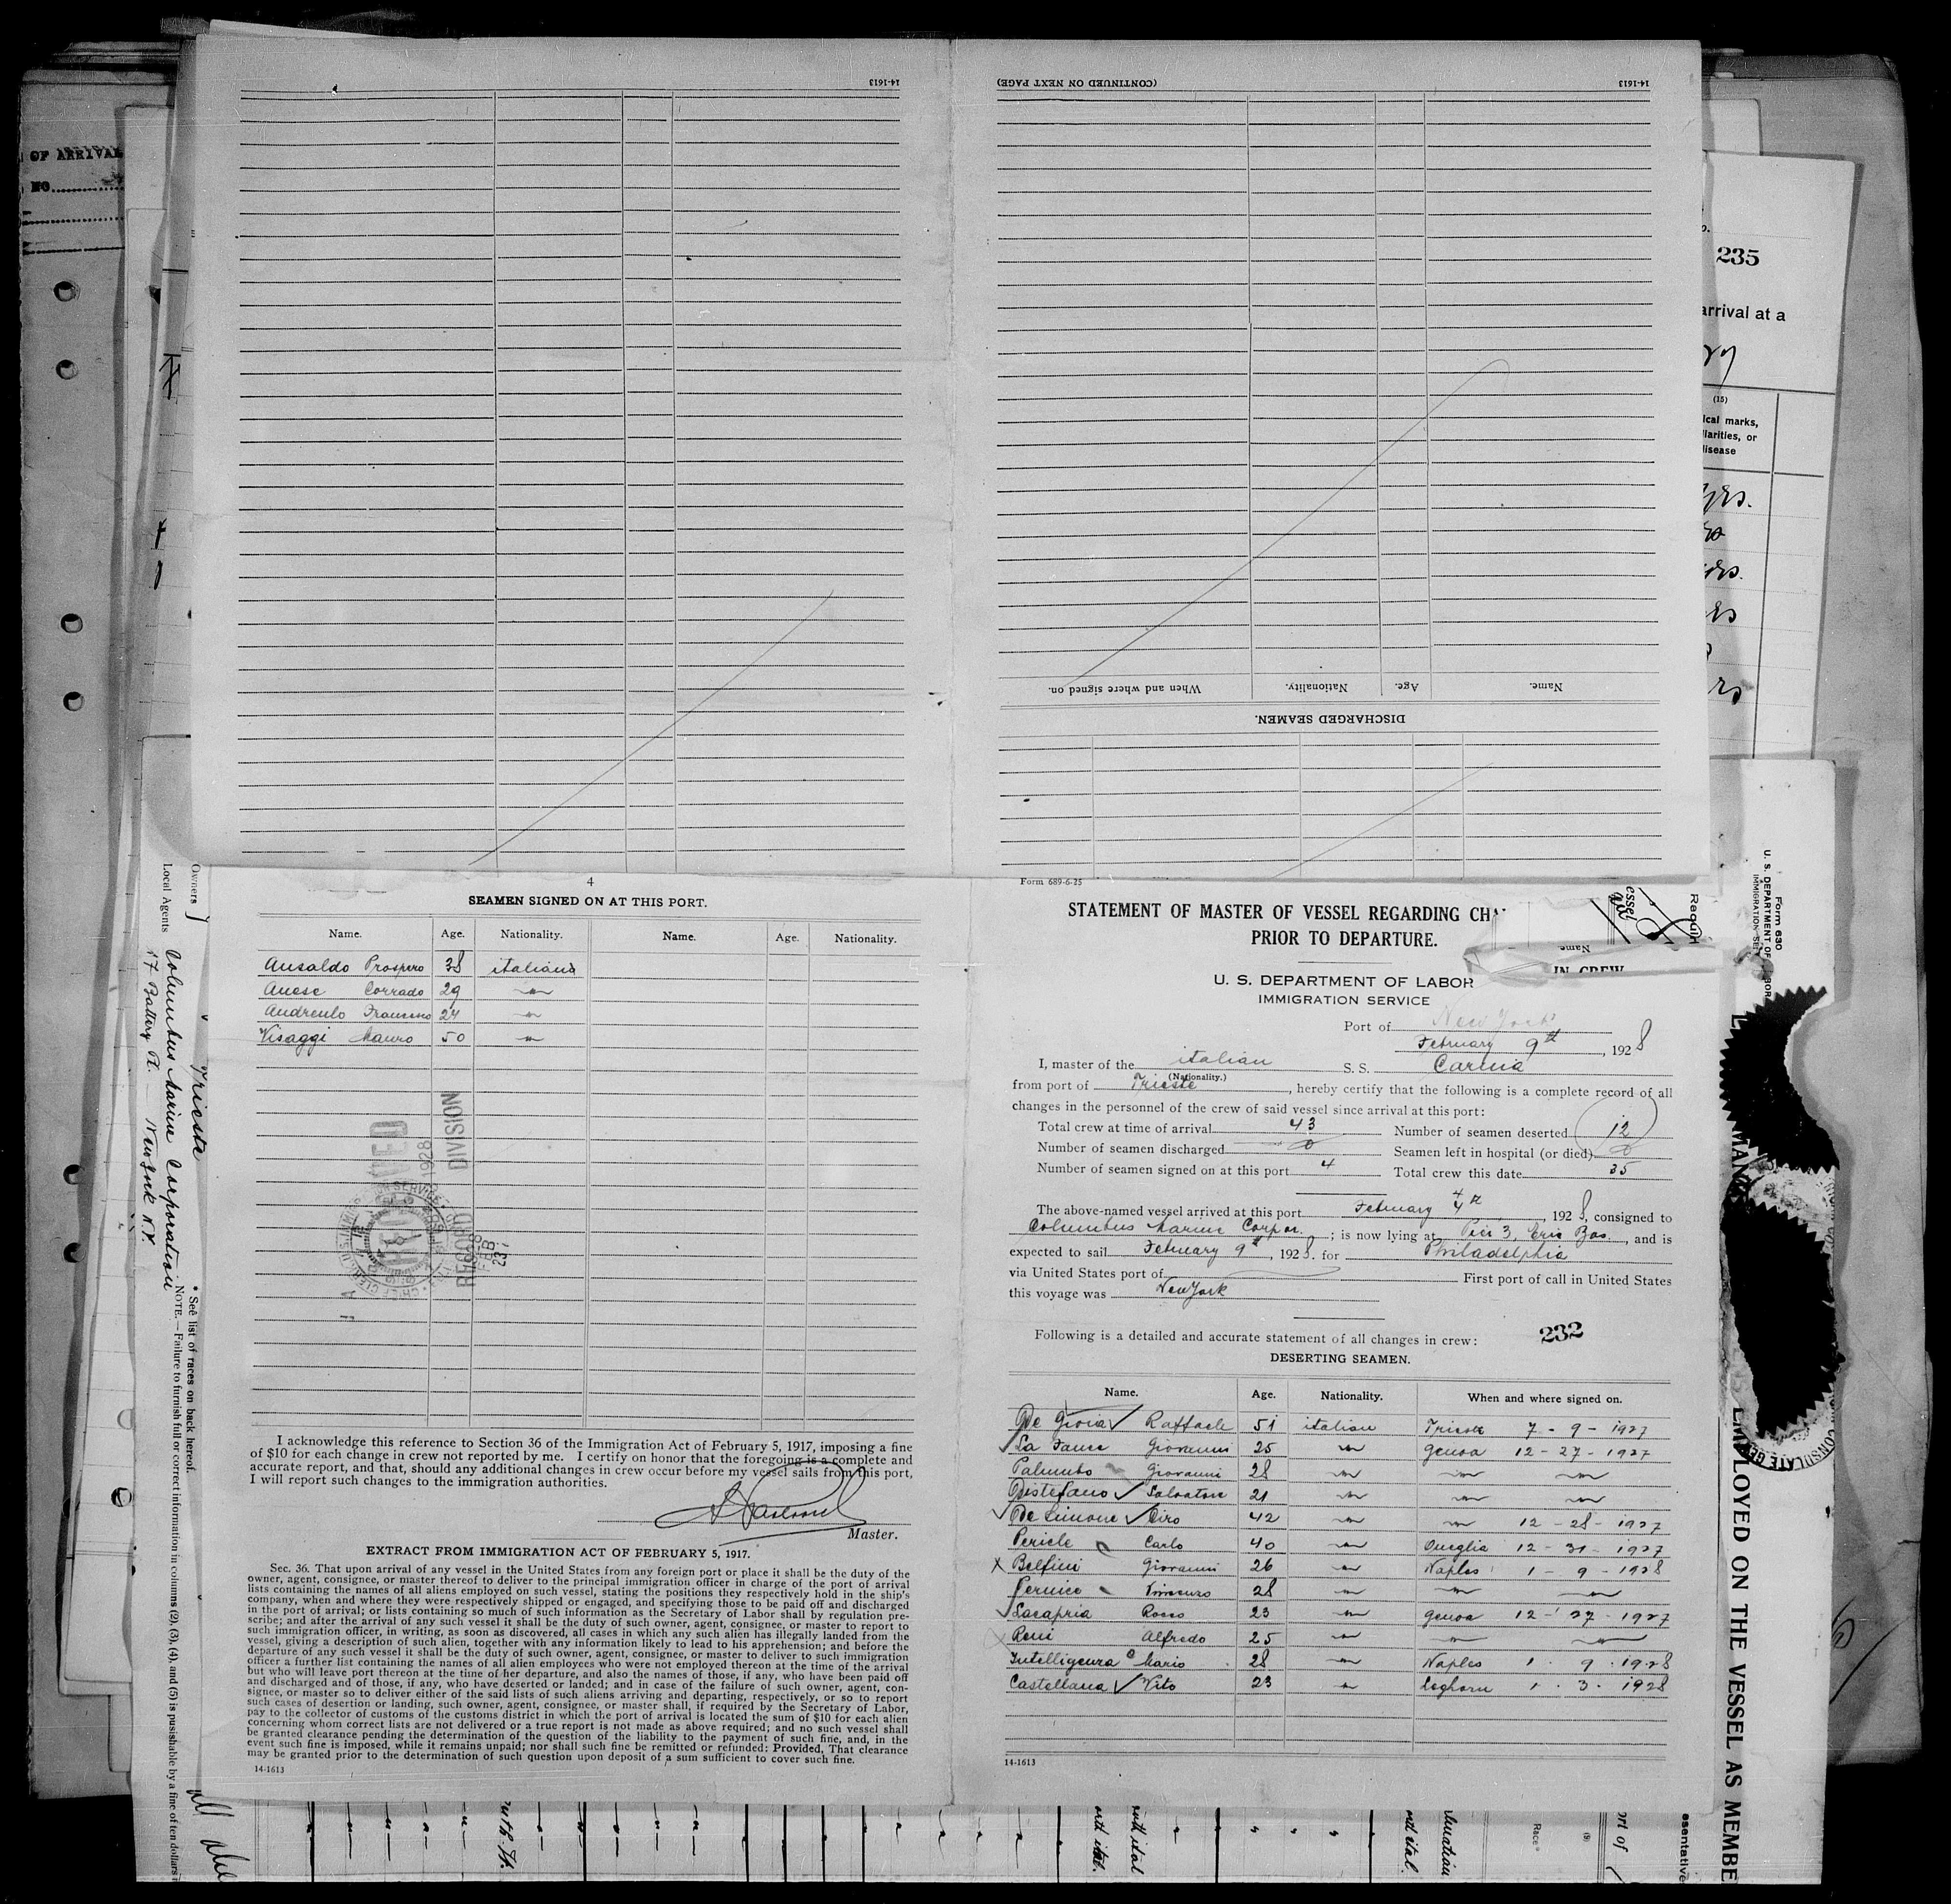 14-1613
(CONTINUED ON NEXT PAGE)
14-1613
When and where signed on.
Nationality.
Age.
Name.
DISCHARGED SEAMEN.
OF ARRIVAL
NO.
235
arrival at a
(15)
ical marks,
larities, or
disease
yrs.
4
SEAMEN SIGNED ON AT THIS PORT.
Name. Age. Nationality. Name. Age. Nationality.
Ansaldo Prospero 38 italiana
Anese Corrado 29 "
24 "
Visaggi Mauro 50 "
I acknowledge this reference to Section 36 of the Immigration Act of February 5, 1917, imposing a fine
of $10 for each change in crew not reported by me. I certify on honor that the foregoing is a complete and
accurate report, and that, should any additional changes in crew occur before my vessel sails from this port,
I will report such changes to the immigration authorities.
Master.
EXTRACT FROM IMMIGRATION ACT OF FEBRUARY 5, 1917.
Sec. 36. That upon arrival of any vessel in the United States from any foreign port or place it shall be the duty of the
owner, agent, consignee, or master thereof to deliver to the principal immigration officer in charge of the port of arrival
lists containing the names of all aliens employed on such vessel, stating the positions they respectively hold in the ship's
company, when and where they were respectively shipped or engaged, and specifying those to be paid off and discharged
in the port of arrival; or lists containing so much of such information as the Secretary of Labor shall by regulation pre-
scribe; and after the arrival of any such vessel it shall be the duty of such owner, agent, consignee, or master to report to
such immigration officer, in writing, as soon as discovered, all cases in which any such alien has illegally landed from the
vessel, giving a description of such alien, together with any information likely to lead to his apprehension; and before the
departure of any such vessel it shall be the duty of such owner, agent, consignee, or master to deliver to such immigration
officer a further list containing the names of all alien employees who were not employed thereon at the time of the arrival
but who will leave port thereon at the time of her departure, and also the names of those, if any, who have been paid off
and discharged and of those, if any, who have deserted or landed; and in case of the failure of such owner, agent, con-
signee, or master so to deliver either of the said lists of such aliens arriving and departing, respectively, or so to report
such cases of desertion or landing, such owner, agent, consignee, or master shall, if required by the Secretary of Labor,
pay to the collector of customs of the customs district in which the port of arrival is located the sum of $10 for each alien
concerning whom correct lists are not delivered or a true report is not made as above required; and no such vessel shall
be granted clearance pending the determination of the question of the liability to the payment of such fine, and, in the
event such fine is imposed, while it remains unpaid; nor shall such fine be remitted or refunded: Provided, That clearance
may be granted prior to the determination of such question upon deposit of a sum sufficient to cover such fine.
14-1613
Form 689-6-25
STATEMENT OF MASTER OF VESSEL REGARDING CHA
IN CREW
PRIOR TO DEPARTURE.
U. S. DEPARTMENT OF LABOR
IMMIGRATION SERVICE
Port of New York
February 9th, 1928
I, master of the italian S. S. Carnia
(Nationality.)
from port of Trieste, hereby certify that the following is a complete record of all
changes in the personnel of the crew of said vessel since arrival at this port:
Total crew at time of arrival 43 Number of seamen deserted 12
Number of seamen discharged 0 Seamen left in hospital (or died) 0
Number of seamen signed on at this port 4 Total crew this date 35
The above-named vessel arrived at this port February 4th, 1928, consigned to
Columbus Marine Corpor.; is now lying at Pier 3, Erie Bas., and is
expected to sail February 9th, 1928. for Philadelphia
via United States port of First port of call in United States
this voyage was New York
Following is a detailed and accurate statement of all changes in crew: 232
DESERTING SEAMEN.
Name. Age. Nationality. When and where signed on.
De Gioia Raffaele 51 italian Trieste 7 - 9 - 1927
La Fauce Giovanni 25 " genoa 12 - 27 - 1927
Palumbo Giovanni 28 " " "
Distefano Salvatore 21 " " "
De Simone Ciro 42 " " 12 - 28 - 1927
Pericle Carlo 40 " Oneglia 12 - 31 - 1927
Belfini Giovanni 26 " Naples 1 - 9 - 1928
Pernice Vincenzo 28 " " "
Lacapria Rocco 23 " genoa 12 - 27 - 1927
Reni Alfredo 25 " " "
Intelligenza Mario 28 " Naples 1 . 9 . 1928
Castellana Vito 23 " Leghorn 1 . 3 . 1928
14-1613
Owners
Local Agents Columbus Marine Corporation
17 Battery Pl. New York N.Y.
Trieste
* See list of races on back hereof.
NOTE.—Failure to furnish full or correct information in columns (2), (3), (4), and (5) is punishable by a fine of ten dollars
Form 630
U. S. DEPARTMENT OF LABOR
IMMIGRATION SE
LOYED ON THE VESSEL AS MEMBE
CONSULATE GE
DIVISION
RECORD
FEB